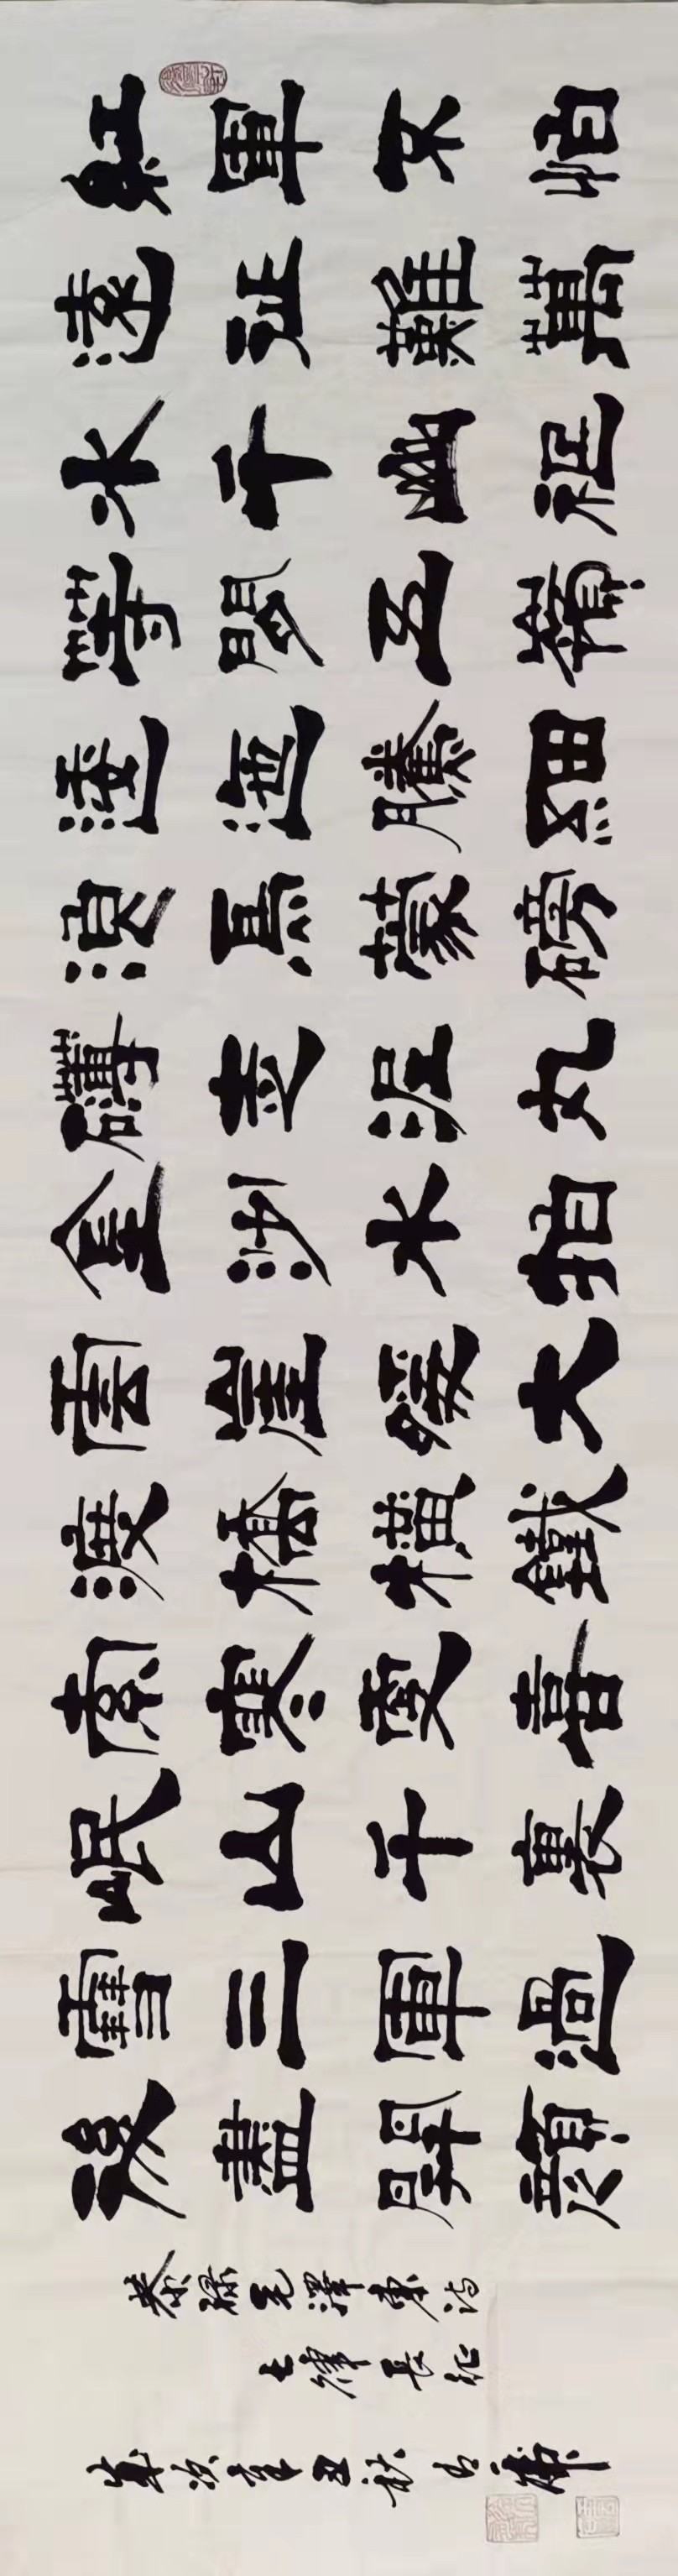 紅軍不怕
遠征難萬
水千山祇
等閒五嶺
逶迤騰細
浪烏蒙磅
礴走泥丸
金沙水拍
雲崖暖大
渡橋橫鐵
索寒更喜
岷山千裏
雪三軍過
後盡開顏
恭録毛澤東詩
七律長征
歲次辛丑秋